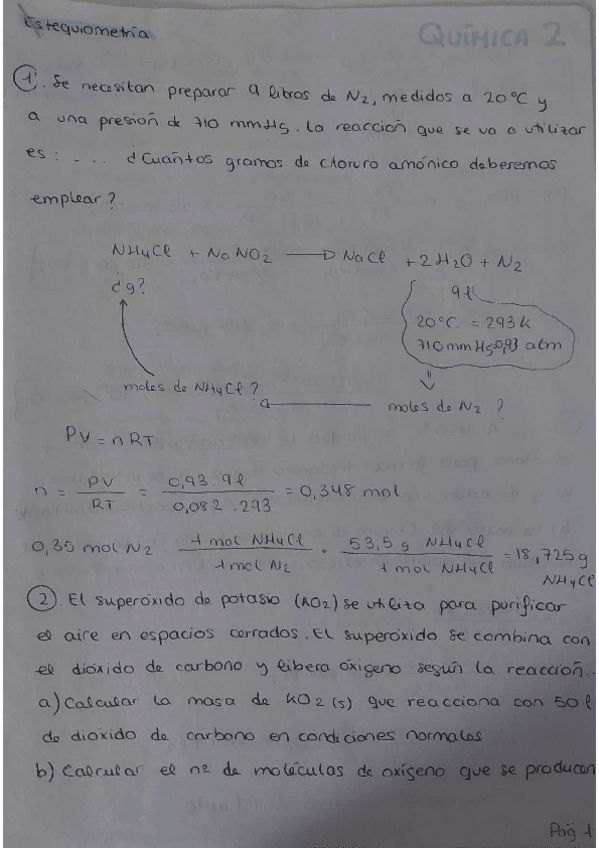 Estequiometría
QUÍMICA 2
1. Se necesitan preparar 9 litros de N2, medidos a 20°C y
a una presión de 710 mmHg. La reacción que se va a utilizar
es: .... ¿Cuántos gramos de cloruro amónico deberemos
emplear?
NH4Cl + NaNO2 → NaCl + 2H2O + N2
¿g?
9l
20°C = 293k
710 mmHg=0,93 atm
moles de NH4Cl?
← moles de N2?
PV = nRT
n = PV / RT = 0,93 . 9l / 0,082 . 293 = 0,348 mol
0,35 mol N2 . 1 mol NH4Cl / 1 mol N2 . 53,5 g NH4Cl / 1 mol NH4Cl = 18,725 g NH4Cl
2. El superóxido de potasio (KO2) se utiliza para purificar
el aire en espacios cerrados. El superóxido se combina con
el dióxido de carbono y libera oxígeno según la reacción..
a) Calcular la masa de KO2 (s) que reacciona con 50l
de dioxido de carbono en condiciones normales
b) Calcular el nº de moléculas de oxígeno que se producen
Pág 1